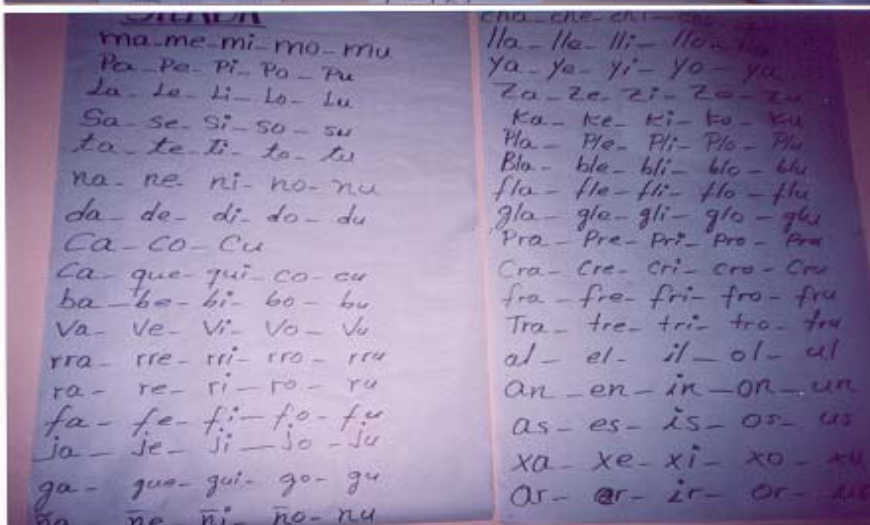 ma-me-mi-mo-mu
Pa-Pe-Pi-Po-Pu
La-Le-Li-Lo-Lu
Sa-se-si-so-su
ta-te-ti-to-tu
na-ne-ni-no-nu
da-de-di-do-du
Ca-co-cu
Ca-que-qui-co-cu
ba-be-bi-bo-bu
Va-Ve-Vi-Vo-Vu
rra-rre-rri-rro-rru
ra-re-ri-ro-ru
fa-fe-fi-fo-fu
ja-je-ji-jo-ju
ga-gue-gui-go-gu
ñe-ñi-ño-nu
cha-che-chi
lla-lle-lli-llo
ya-ye-yi-yo-yu
Za-Ze-Zi-Zo-Zu
Ka-Ke-Ki-Ko-Ku
Pla-Ple-Pli-Plo-Plu
Bla-ble-bli-blo-blu
fla-fle-fli-flo-flu
gla-gle-gli-glo-glu
Pra-Pre-Pri-Pro-Pru
Cra-Cre-Cri-Cro-Cru
fra-fre-fri-fro-fru
Tra-tre-tri-tro-tru
al-el-il-ol-ul
an-en-in-on-un
as-es-is-os-us
xa-xe-xi-xo-xu
ar-er-ir-or